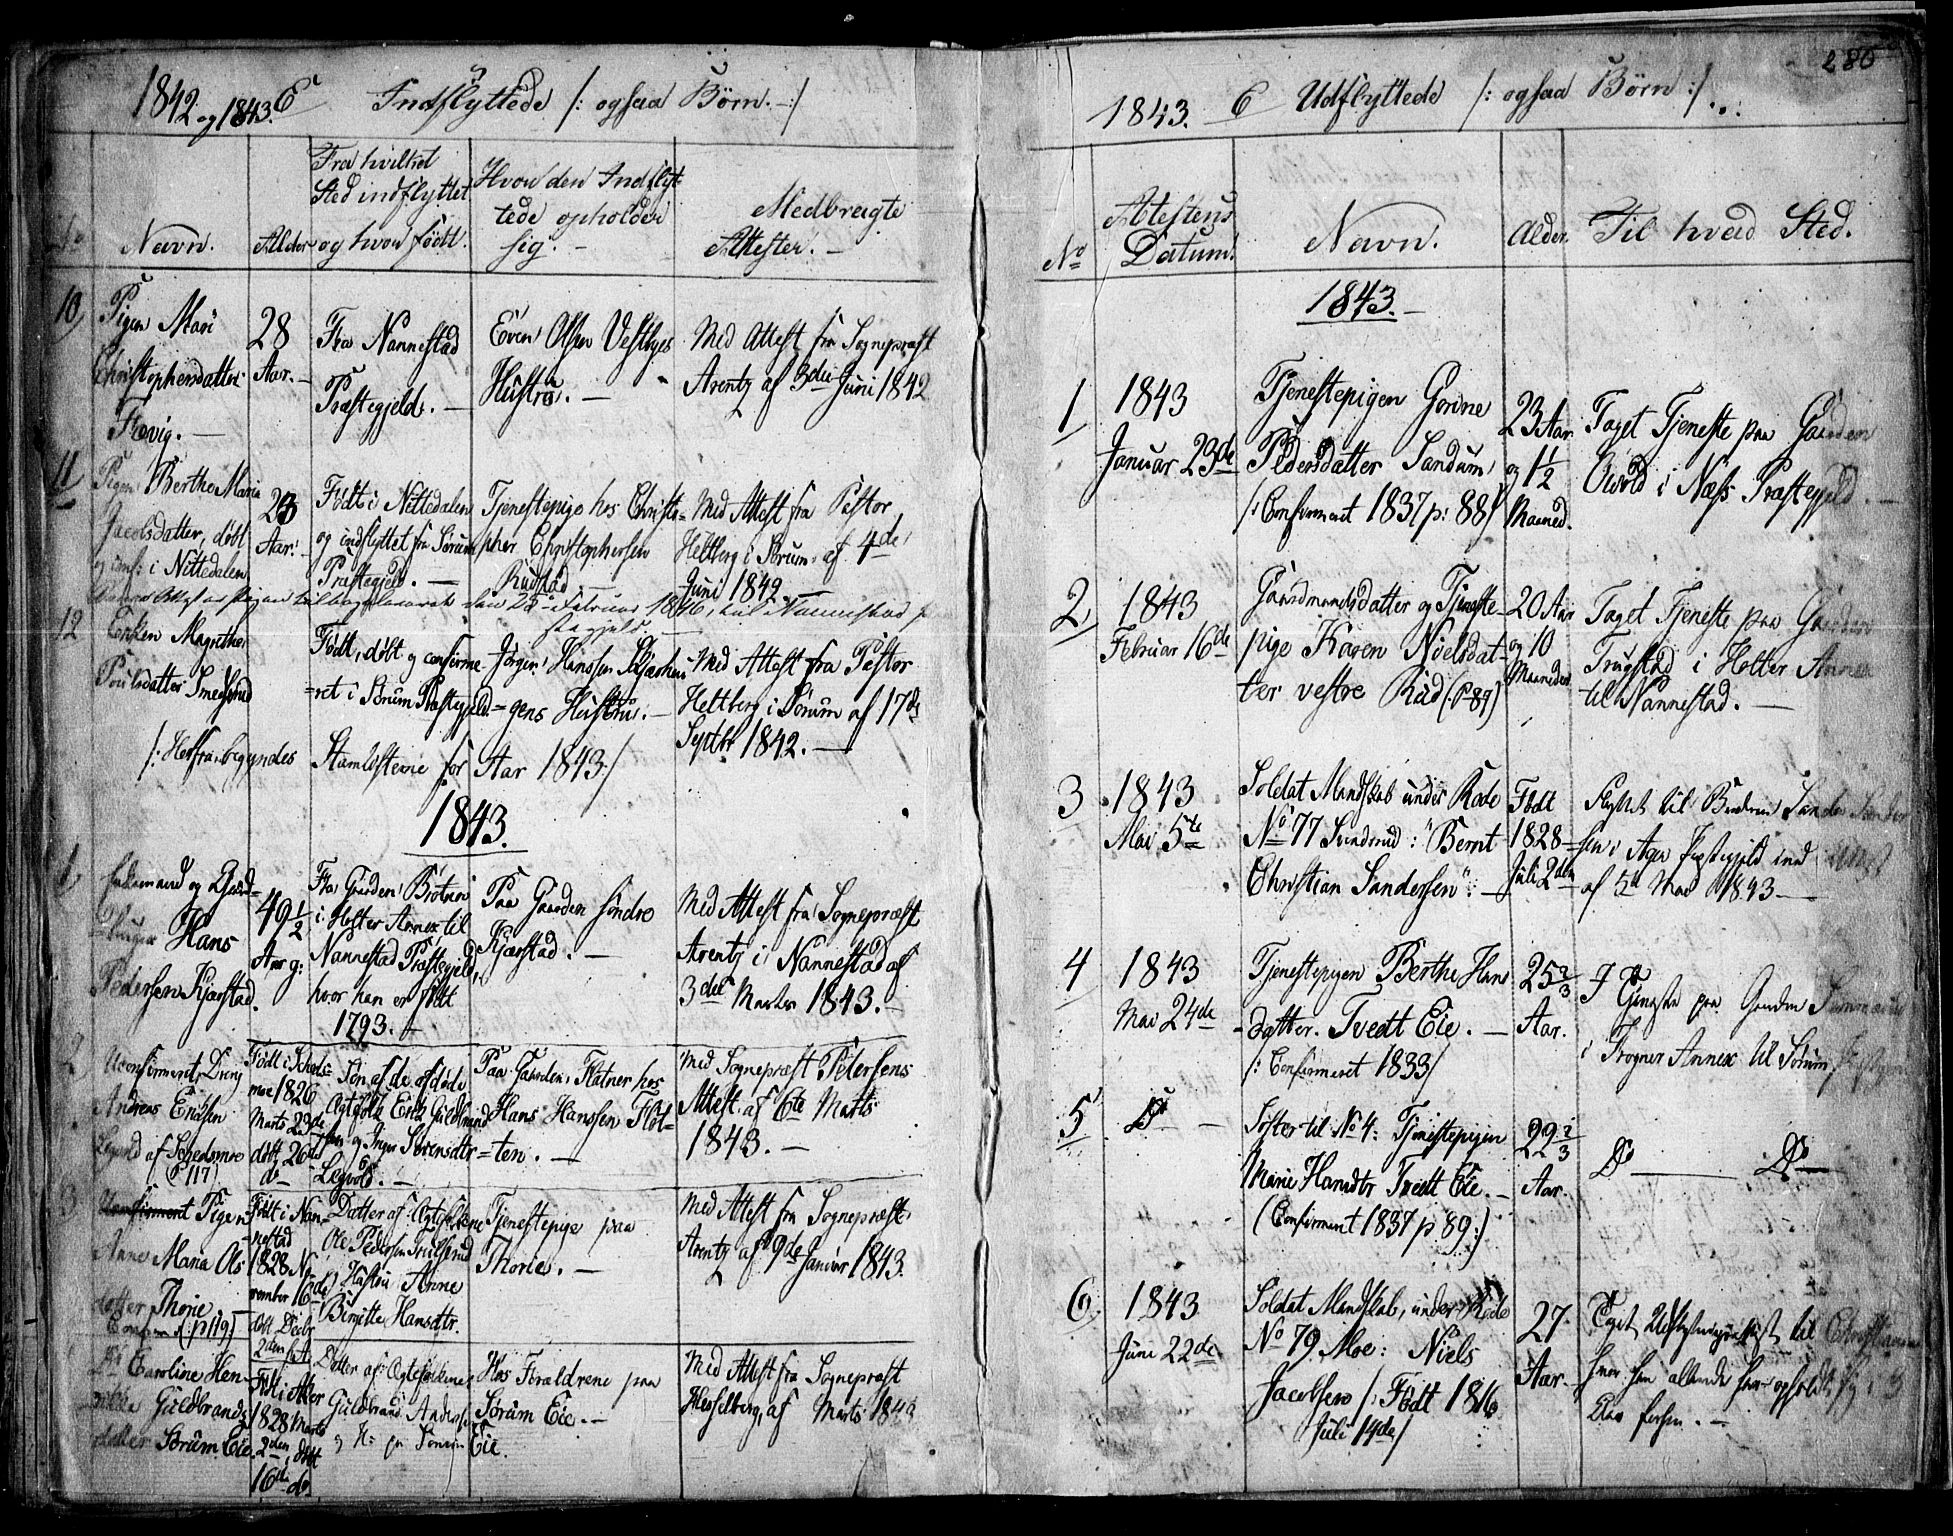 1842 og 1843. E Indflyttede /: ogsaa Børn. :/
No
Navn.
Alder
Fra hvilket
Sted indflyttet
og hvor født.
Hvor den Indflyt-
tede opholder
sig. -
Medbragte
Attester. -
10
Pigen Mari
Christophersdatter
28
Aar. -
Fra Nannestad
Præstegjeld. -
Even Olsen Vestbyes
Hustru. -
Med Attest fra Sognepræst
Arentz af 3die Juni 1842
11
Pigen Berthe Maria
Jacobsdatter, døbt
og conf: i Nittedalen
23
Aar.
Født i Nittedalen
og indflyttet fra Sørum
Præstegjeld. -
Tjenestepige hos Christo=
pher Christophersen
Rudstad
Med Attest fra Pastor
Heltberg i Sørum af 4de
Juni 1842.
1846, til Nannestad
12
Magrethe
Poulsdatter Smedsrud
Født, døbt og confirme
=ret i Sørum Præstegjeld. -
Jørgen Hanssen
gens Hustru. -
Med Attest fra Pastor
Heltberg i Sørum af 17de
Septbr 1842. -
/: Herfra begyndes Stamlisterne for Aar 1843 :/
1843.
1
Enkemand og Gaard-
bruger Hans
Pedersen Kjærstad.
49 1/2
Aar g:
Fra Gaarden
i Holter Annex til
Nannestad Præstegjeld,
hvor han er født
1793.
Paa Gaarden søndre
Kjærstad. -
Med Attest fra Sognepræst
Arentz i Nannestad af
3die Marts 1843. -
2
Uconfirmeret Dreng
Andreas Ericksen
af Schedsmoe
(P 117)
Født i Scheds=
moe 1826
Marts 23de
døbt 26de
do -
Søn af de afdøde
Ægtefolk Erik Guldbrand
sen og Inger Sørensdtr
Paa Gaarden Flatner hos
Hans Hanssen Flat=
ten. -
Med Sognepræst Petersens
Attest af 6te Marts
1843. -
3
Uconfirmeret Pigen
Anne Maria Ols
datter Thorie
(P 119)
Født i Nan=
nestad
1828 No-
vember 16de
døbt Decbr
2den s. A.
Datter af Ægtefolkene
Ole Pedersen
Hustru Anne
Birgitte Hansdtr.
Tjenestepige paa
Thorie. -
Med Attest fra Sognepræst
Arentz af 9de Januar 1843.
Caroline Hen-
rikke Guldbrands
datter Sørum Eie
Født i Aker
1828 Marts
2den, døbt
16de do.
Datter af Ægtefolkene
Guldbrand Anders
Eie.
Hos Forældrene paa
Sørum Eie. -
Med Attest fra Sognepræst
Hesselberg, af Marts 1843
280
1843. E Udflyttede /: ogsaa Børn :/
No
Attestens
Datum.
Navn.
Alder.
Til hvad Sted.
1843. -
1
1843
Januar 23de
Tjenestepigen Gorine
Pedersdatter Sandum
/: Confirmeret 1837 p: 88/
23 Aar
og 1 1/2
Maaned.
Taget Tjeneste paa Gaarden
i Næss Præstegjeld. -
2
1843
Februar 16de
Gaardmandsdatter og Tjeneste-
pige Karen Nielsdat-
ter vestre Rud (: P 89)
20 Aar
og 10
Maaneder
Taget Tjeneste paa Gaarden
Trugstad i Holter Annex
til Nannestad. -
3
1843
Mai 5te
Soldat Mandskab under Rode
No 77 Svendsrud: "Bernt
Christian Sandersen". -
Født
1828
Juli 2den
Flyttet til Broderen Sander Sander
sen i Ager Præstegjeld ind
af 5te Mai 1843 -
4
1843
Mai 24de
Tjenestepigen Berthe Hans
datter Tvedt Eie. -
/: Confirmeret 1833/
25 2/3
Aar.
I Tjeneste paa Gaarden
i Frogner Annex til Sørum
5
Do -
Søster til No 4: Tjenestepigen
Marie Hansdtr Tvedt Eie. -
(Confirmeret 1837 p. 89:)
22 2/3
Aar.
Do - Do -
6
1843
Juni 22de
Soldat Mandskab, under Rode
No 79 Moe: Niels
Jacobsen /: Født 1816
Juli 14de/
27
Aar. -
til Christiania
hvor han allerede har opholdt sig i 3
Aar forhen. -